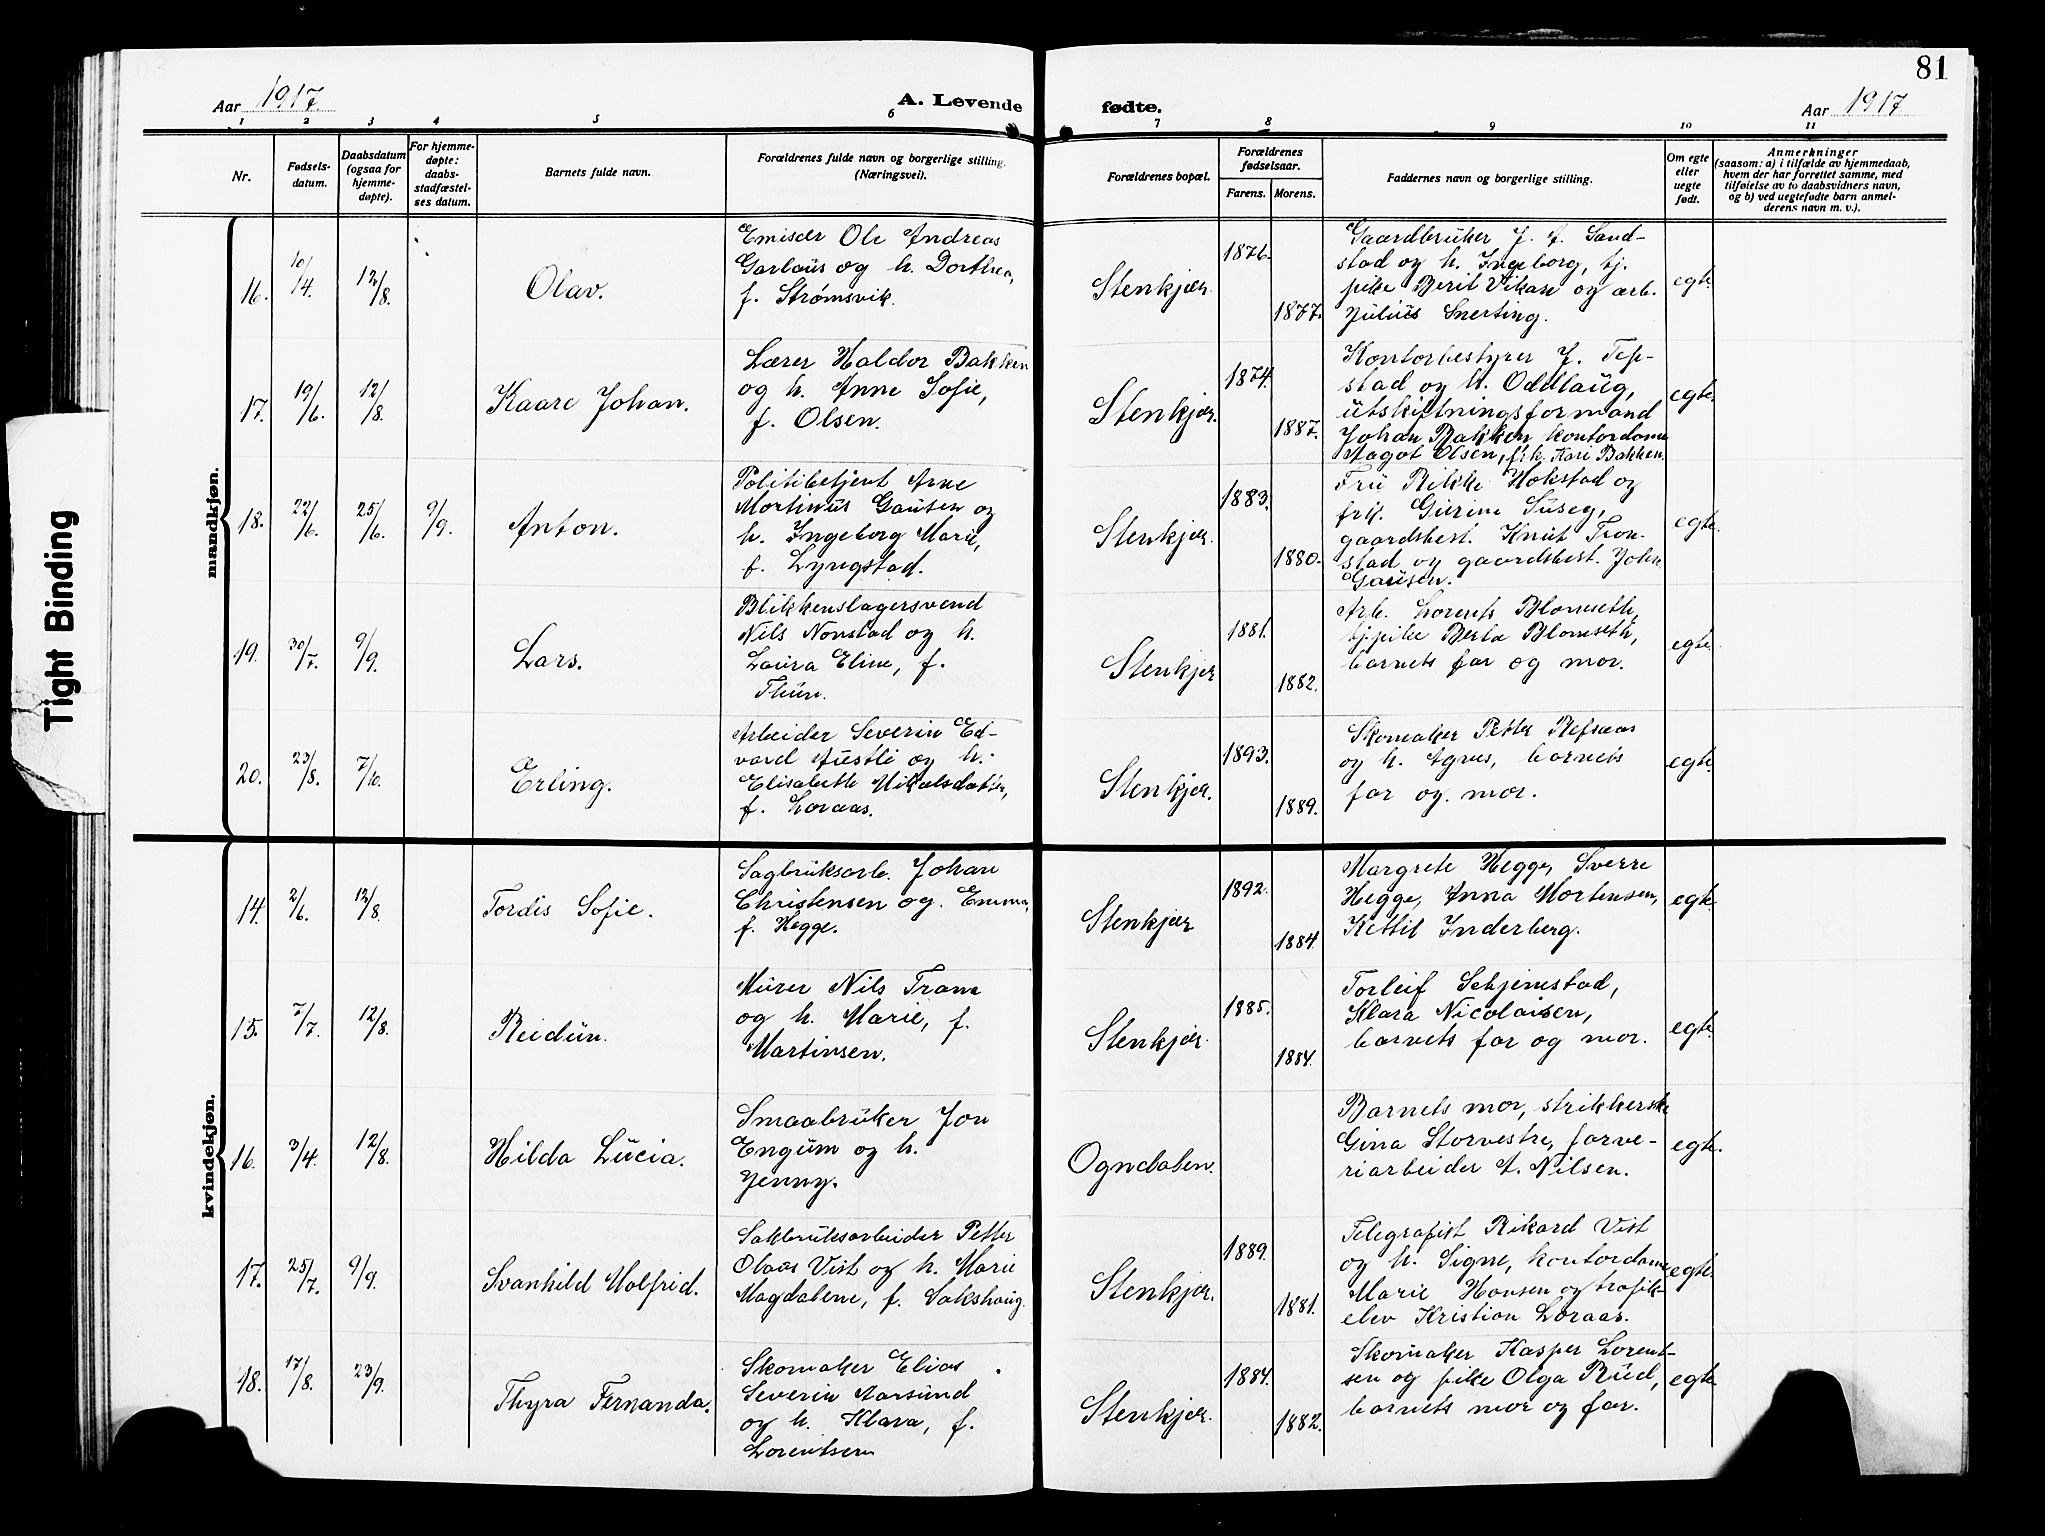 81
Aar 1917. A. Levende fødte. Aar 1917
1 2 3 4 5 6 7 8 9 10 11
Nr.
Fødsels-
datum.
Daabsdatum
(ogsaa for
hjemme-
døpte).
For hjemme-
døpte:
daabs-
stadfæstel-
ses datum.
Barnets fulde navn.
Forældrenes fulde navn og borgerlige stilling.
(Næringsvei).
Forældrenes bopæl.
Forældrenes
fødselsaar.
Farens. Morens.
Faddernes navn og borgerlige stilling.
Om egte
eller
uegte
født.
Anmerkninger
(saasom: a) i tilfælde av hjemmedaab,
hvem der har forrettet samme, med
tilføielse av to daabsvidners navn,
og b) ved uegtefødte barn anmel-
derens navn m. v.).
Tight Binding
mandkjøn.
16. 10/14. 12/8. Olav.
Emisær Ole Andreas
Garlaus og h. Dorthea,
f. Strømsvik.
Stenkjær. 1876. 1877.
Gaardbruker J. A. Sand-
stad og h. Ingeborg, tj.
pike Berit Vikan og arb.
Julius Snerting.
egte.
17. 19/6. 12/8. Kaare Johan.
Lærer Haldor Bakken
og h. Anne Sofie,
f. Olsen.
Stenkjær. 1874. 1887.
Kontorbestyrer J. Tep-
stad og h. Oddlaug,
utskiftningsformand
Johan Bakken kontordame
Magot Olsen, frk. Kari Bakken.
egte.
18. 22/6. 25/6. 9/9. Anton.
Politibetjent Arne
Mortinus Gausen og
h. Ingeborg Marie,
f. Lyngstad.
Stenkjær. 1883. 1880.
Fru Rikke Hokstad og
frk. Gurine Suseg,
gaardsbest. Knut Tron-
stad og gaardsbest. John
Gausen.
egte.
19. 30/7. 9/9. Lars.
Blikkenslagersvend
Nils Nonstad og h.
Laura Eline, f.
Thun.
Stenkjær 1881. 1882.
Arb. Lorents Blomseth,
tjpike Berta Blomseth,
barnets far og mor.
egte.
20. 23/8. 7/10. Erling.
Arbeider Severin Ed-
vard Austli og h.
Elisabeth Nikolsdatter,
f. Loraas.
Stenkjær. 1893. 1889.
Skomaker Petter Refsaas
og h. Agnes, barnets
far og mor.
egte.
kvindekjøn.
14. 2/6. 12/8. Tordis Sofie.
Sagbruksarb. Johan
Christensen og Emma,
f. Hegge.
Stenkjær 1892. 1884
Margrete Hegge, Sverre
Hegge, Anna Mortensen,
Kettil Inderberg.
egte.
15. 7/7. 12/8. Reidun.
Murer Nils Trana
og h. Marie, f.
Martinsen.
Stenkjær. 1885. 1884.
Torleif Schjemstad,
Klara Nicolaisen,
barnets far og mor.
egte.
16. 3/4. 12/8. Hilda Lucia.
Smaabruker Jon
Engum og h.
Jenny.
Ogndalen.
Barnets mor, strikkerske
Gina Storvestre, farve-
riarbeider A. Nilsen.
egte.
17. 25/7. 9/9. Svanhild Molfrid.
Sakbruksarbeider Petter
Olaas Vist og h. Marie
Magdalene, f. Sakshaug.
Stenkjær. 1889. 1881.
Telegrafist Rikard Vist
og h. Signe, kontordame
Marie Hansen og trafik-
elev Kristian Loraas.
egte.
18. 17/8. 23/9. Thyra Fernanda.
Skomaker Elias
Severin Aarsund
og h. Klara, f.
Lorentsen
Stenkjær. 1884. 1882.
Skomaker Kasper Lorent-
sen og pike Olga Rud,
barnets mor og far.
egte.